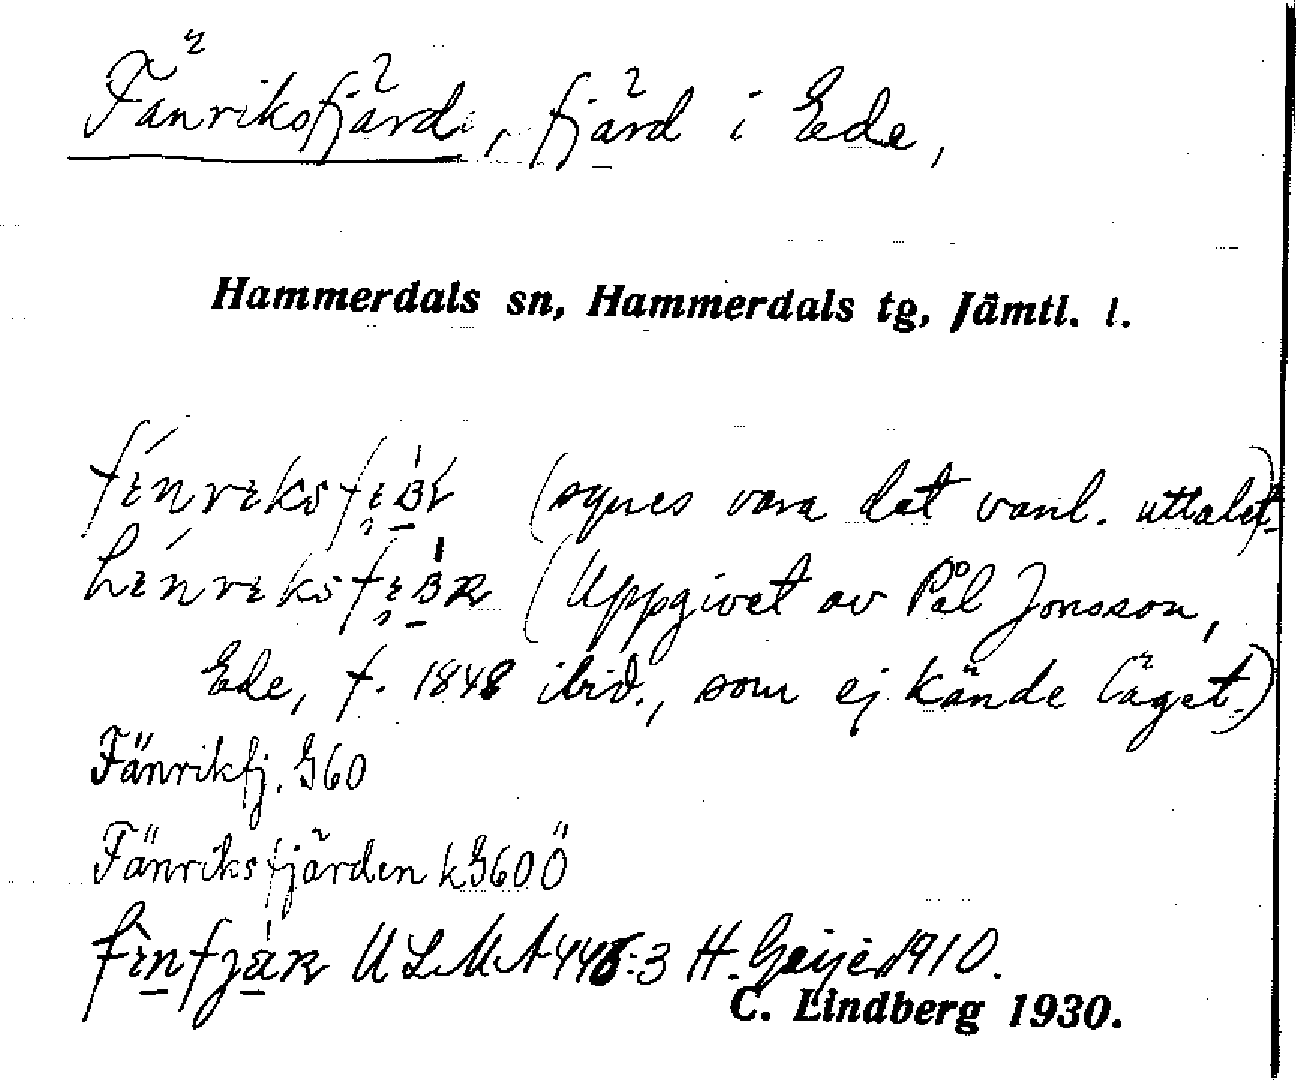 Fänriksfjärd, fjärd i Ede,
Hammerdals sn, Hammerdals tg, Jämtl. l.
(synes vara det vanl. uttalet.)
(Uppgivet av Pål Jonsson,
Ede, f. 1848 ibid., som ej kände läget.)
Fänrikfj. G60
Fänriksfjärden kG60Ö
ULMA 446:3 H. Geijer 1910.
C. Lindberg 1930.